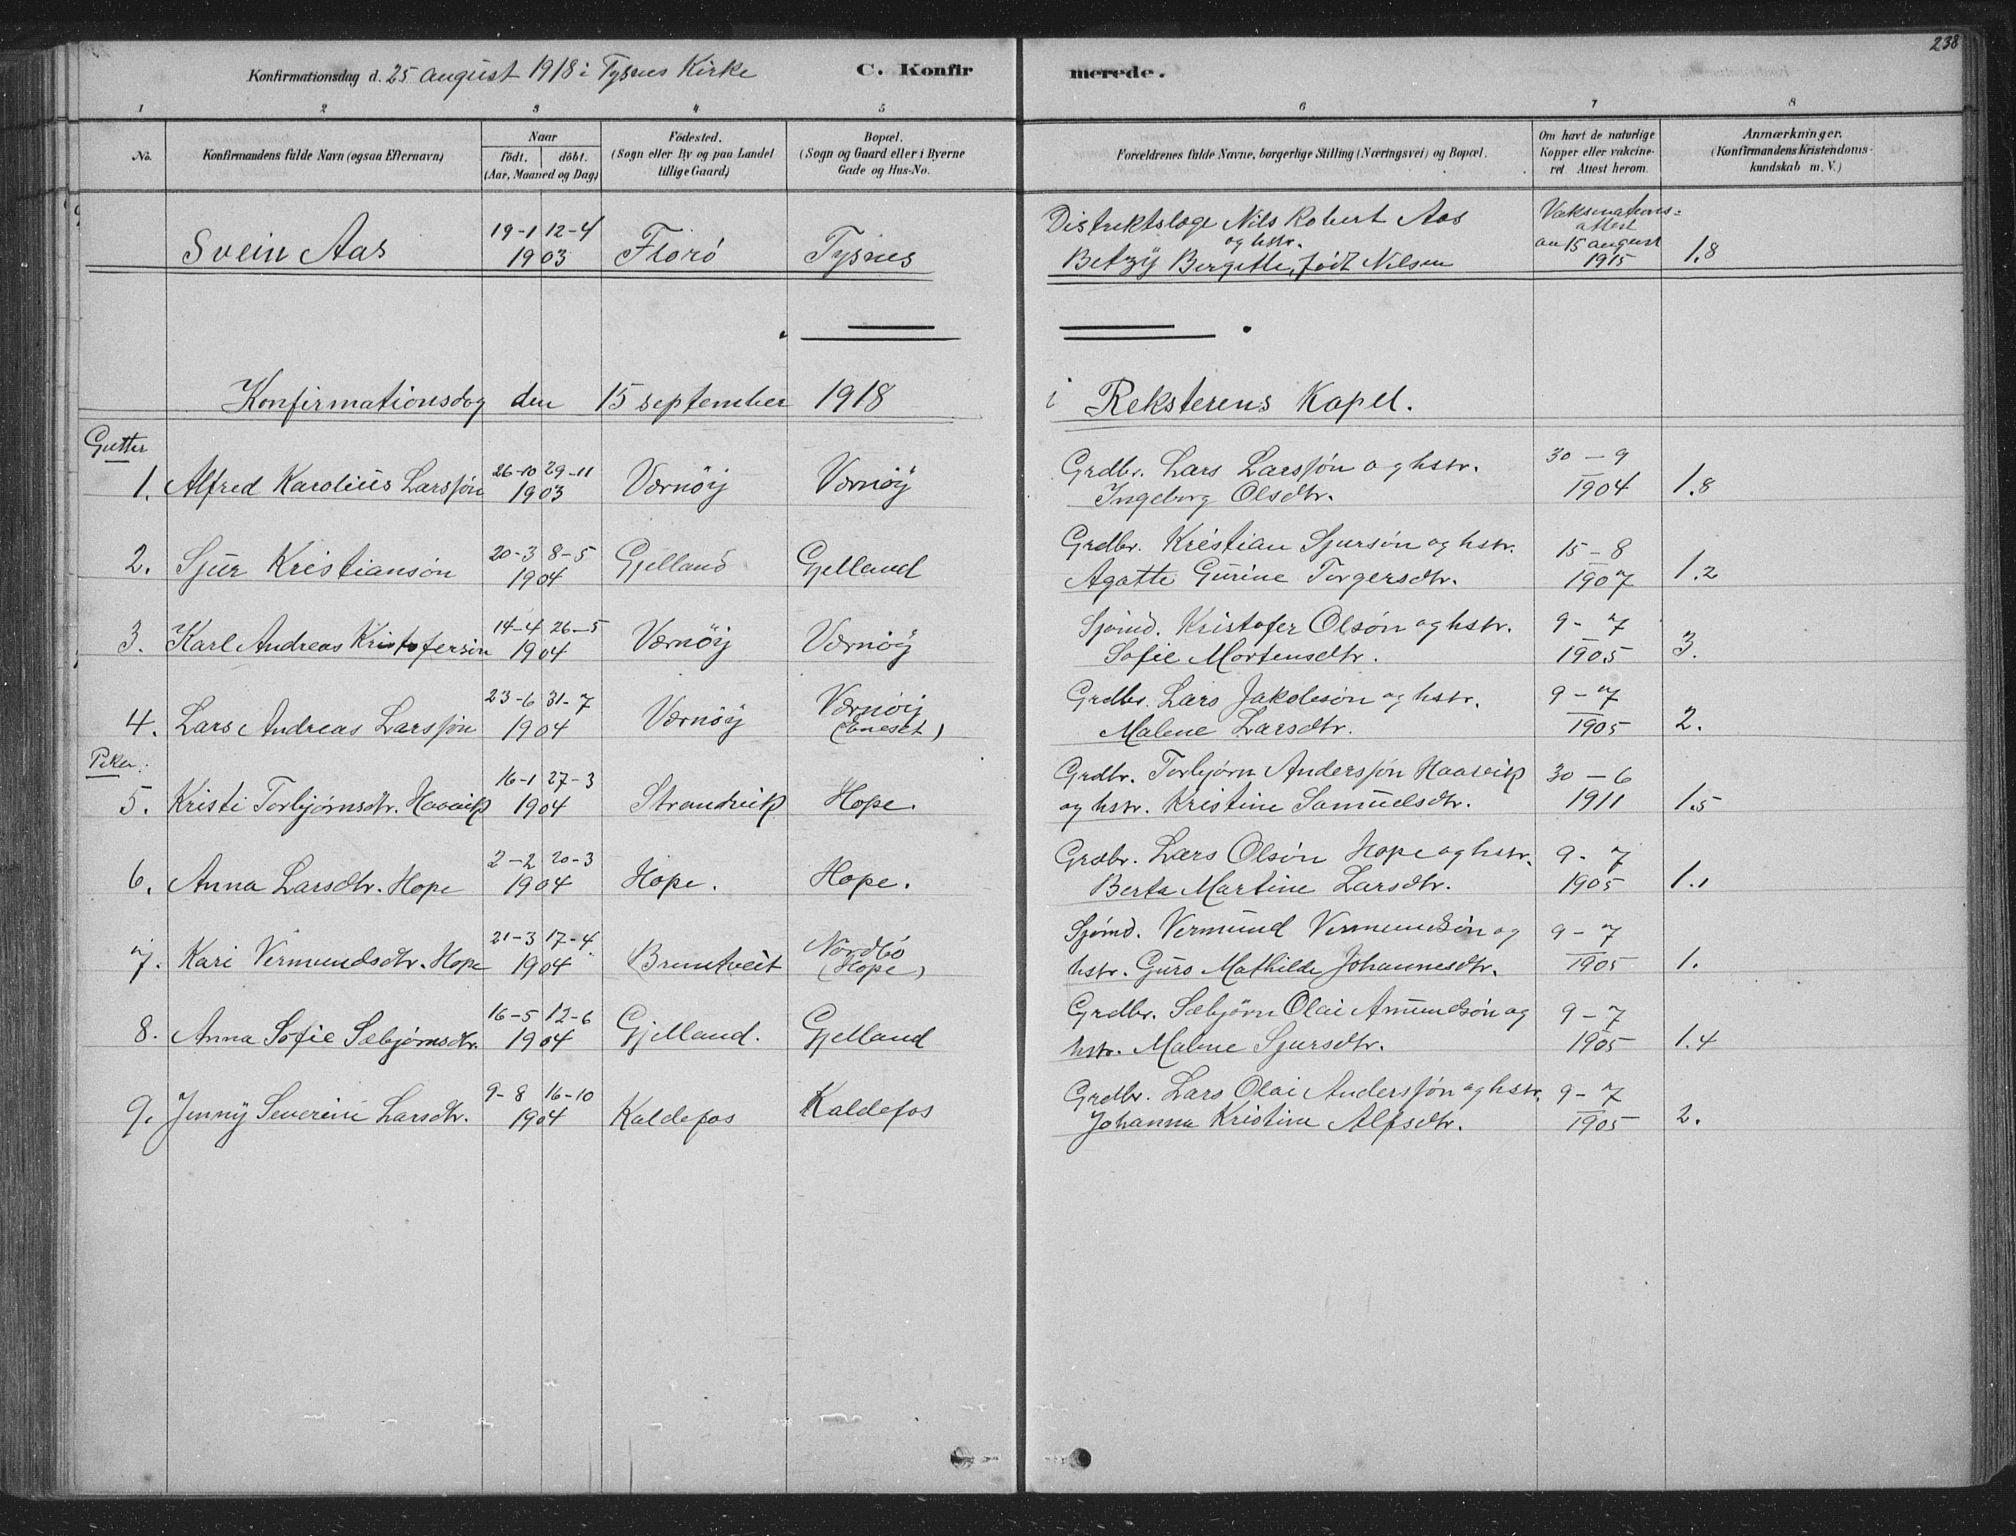 238
Konfirmationsdag d. 25 august 1918 i Tysnes Kirke C. Konfirmerede.
1 2 3 4 5 6 7 8
No.
Konfirmandens fulde Navn (ogsaa Efternavn)
Naar
födt. döbt.
(Aar, Maaned og Dag)
Födested.
(Sogn eller By og paa Landet
tillige Gaard)
Bopæl.
(Sogn og Gaard eller i Byerne
Gade og Hus-No.
Forældrenes fulde Navne, borgerlige Stilling (Næringsvei) og Bopæl.
Om havt de naturlige
Kopper eller vakcine-
ret. Attest herom.
Anmærkninger.
(Konfirmandens Kristendoms-
kundskab m. V.)
Svein Aas 19-1 12-4 1903 Florö Tysnes
Distriktslæge Nils Robert Aas
og hstr.
Betzÿ Bergitte, født Nilsen
Vaksinations-
attest
av 15 august
1915
1.8
Konfirmationsdag den 15 september 1918 i Reksterens Kapel.
Gutter
1. Alfred Karolius Larssøn 26-10 29-11 1903 Værnöÿ Værnöÿ
Grdbr. Lars Larssøn og hstr.
Ingeborg Olsdtr.
30-9
1904
1.8
2. Sjur Kristiansøn 20-3 8-5 1904 Gjelland Gjelland
Grdbr. Kristian Sjursøn og hstr.
Agatte Gurine Torgersdtr.
15-8
1907
1.2
3. Karl Andreas Kristofersøn 14-4 26-5 1904 Værnöÿ Værnöÿ
Sjömd. Kristofer Olsøn og hstr.
Sofie Mortensdtr.
9-7
1905
3.
4. Lars Andreas Larssøn 23-6 31-7 1904 Værnöÿ Værnöÿ
(Eneset)
Grdbr. Lars Jakobsøn og hstr.
Malene Larsdtr.
9-7
1905
2.
Piker.
5. Kristi Torbjørnsdtr. Haavik 16-1 27-3 1904 Strandvik Hope.
Grdbr. Torbjørn Anderssøn Haavik
og hstr. Kristine Samuelsdtr.
30-6
1911
1.5
6. Anna Larsdtr. Hope 2-2 20-3 1904 Hope. Hope.
Grdbr. Lars Olsøn Hope og hstr.
Berta Martine Larsdtr.
9-7
1905
1.1
7. Kari Vermundsdtr. Hope 21-3 17-4 1904 Bruntveit Nordbö
(Hope)
Sjømd. Vermund Vermundsøn og
hstr. Guro Mathilde Johannesdtr.
9-7
1905
1.
8. Anna Sofie Sæbjørnsdtr. 16-5 12-6 1904 Gjelland. Gjelland
Grdbr. Sæbjørn Olai Amundsøn og
hstr. Malene Sjursdtr.
9-7
1905
1.4
9. Jenny Severine Larsdtr. 9-8 16-10 1904 Kaldefos Kaldefos
Grdbr. Lars Olai Anderssøn og hstr.
Johanna Kristine Alfsdtr.
9-7
1905
2.